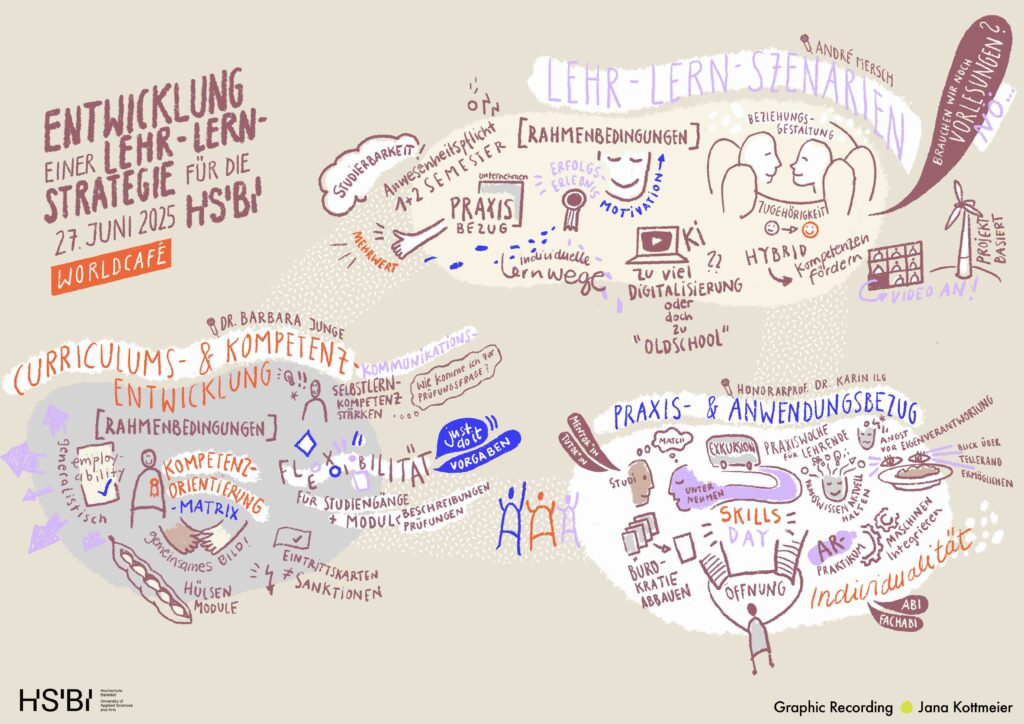 ENTWICKLUNG
EINER LEHR-LERN-
STRATEGIE FÜR DIE
27. JUNI 2025 HSBI
WORLDCAFÉ
ANDRÉ MERSCH
LEHR-LERN-SZENARIEN
BRAUCHEN WIR NOCH
VORLESUNGEN?
NÖ...
STUDIERBARKEIT!
Anwesenheitspflicht
1+2 SEMESTER
[RAHMENBEDINGUNGEN]
unternehmen
PRAXIS
BEZUG
MEHRWERT
ERFOLGS-
ERLEBNIS
MOTIVATION
individuelle
Lernwege
KI
??
ZU VIEL
DIGITALISIERUNG
oder
doch
zu
"OLDSCHOOL"
BEZIEHUNGS-
GESTALTUNG
ZUGEHÖRIGKEIT
HYBRID
Kompetenzen
fördern
VIDEO AN!
PROJEKT
BASIERT
DR. BARBARA JUNGE
CURRICULUMS- & KOMPETENZ-
ENTWICKLUNG
KOMMUNIKATIONS-
[RAHMENBEDINGUNGEN]
SELBSTLERN-
KOMPETENZ
STÄRKEN
Wie komme ich zur
PRÜFUNGSFRAGE?
generalistisch
employ-
ability
KOMPETENZ-
ORIENTIERUNG
-MATRIX
gemeinsames BILD!
HÜLSEN
MODULE
FLEXIBILITÄT
just
do it
VORGABEN
FÜR STUDIENGÄNGE
+ MODUL BESCHREIBUNGEN
PRÜFUNGEN
EINTRITTSKARTEN
≠
SANKTIONEN
HONORARPROF. DR. KARIN ILG
PRAXIS- & ANWENDUNGSBEZUG
MENTOR*IN
TUTOR*IN
MATCH
STUDI
UNTER
NEHMEN
EXKURSION
PRAXISWOCHE
FÜR LEHRENDE
PRAXISWISSEN AKTUELL
HALTEN
ANGST
VOR EIGENVERANTWORTUNG
BLICK ÜBER
TELLERAND
ERMÖGLICHEN
SKILLS
DAY
BÜRO-
KRATIE
ABBAUEN
ÖFFNUNG
AR-
PRAKTIKUM
MASCHINEN
Integrieren
Individualität
ABI
FACHABI
HSBI
Hochschule
Bielefeld
University of
Applied Sciences
and Arts
Graphic Recording Jana Kottmeier